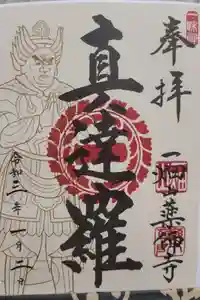 奉拝
真達羅
一畑山薬師寺
令和三年一月二日